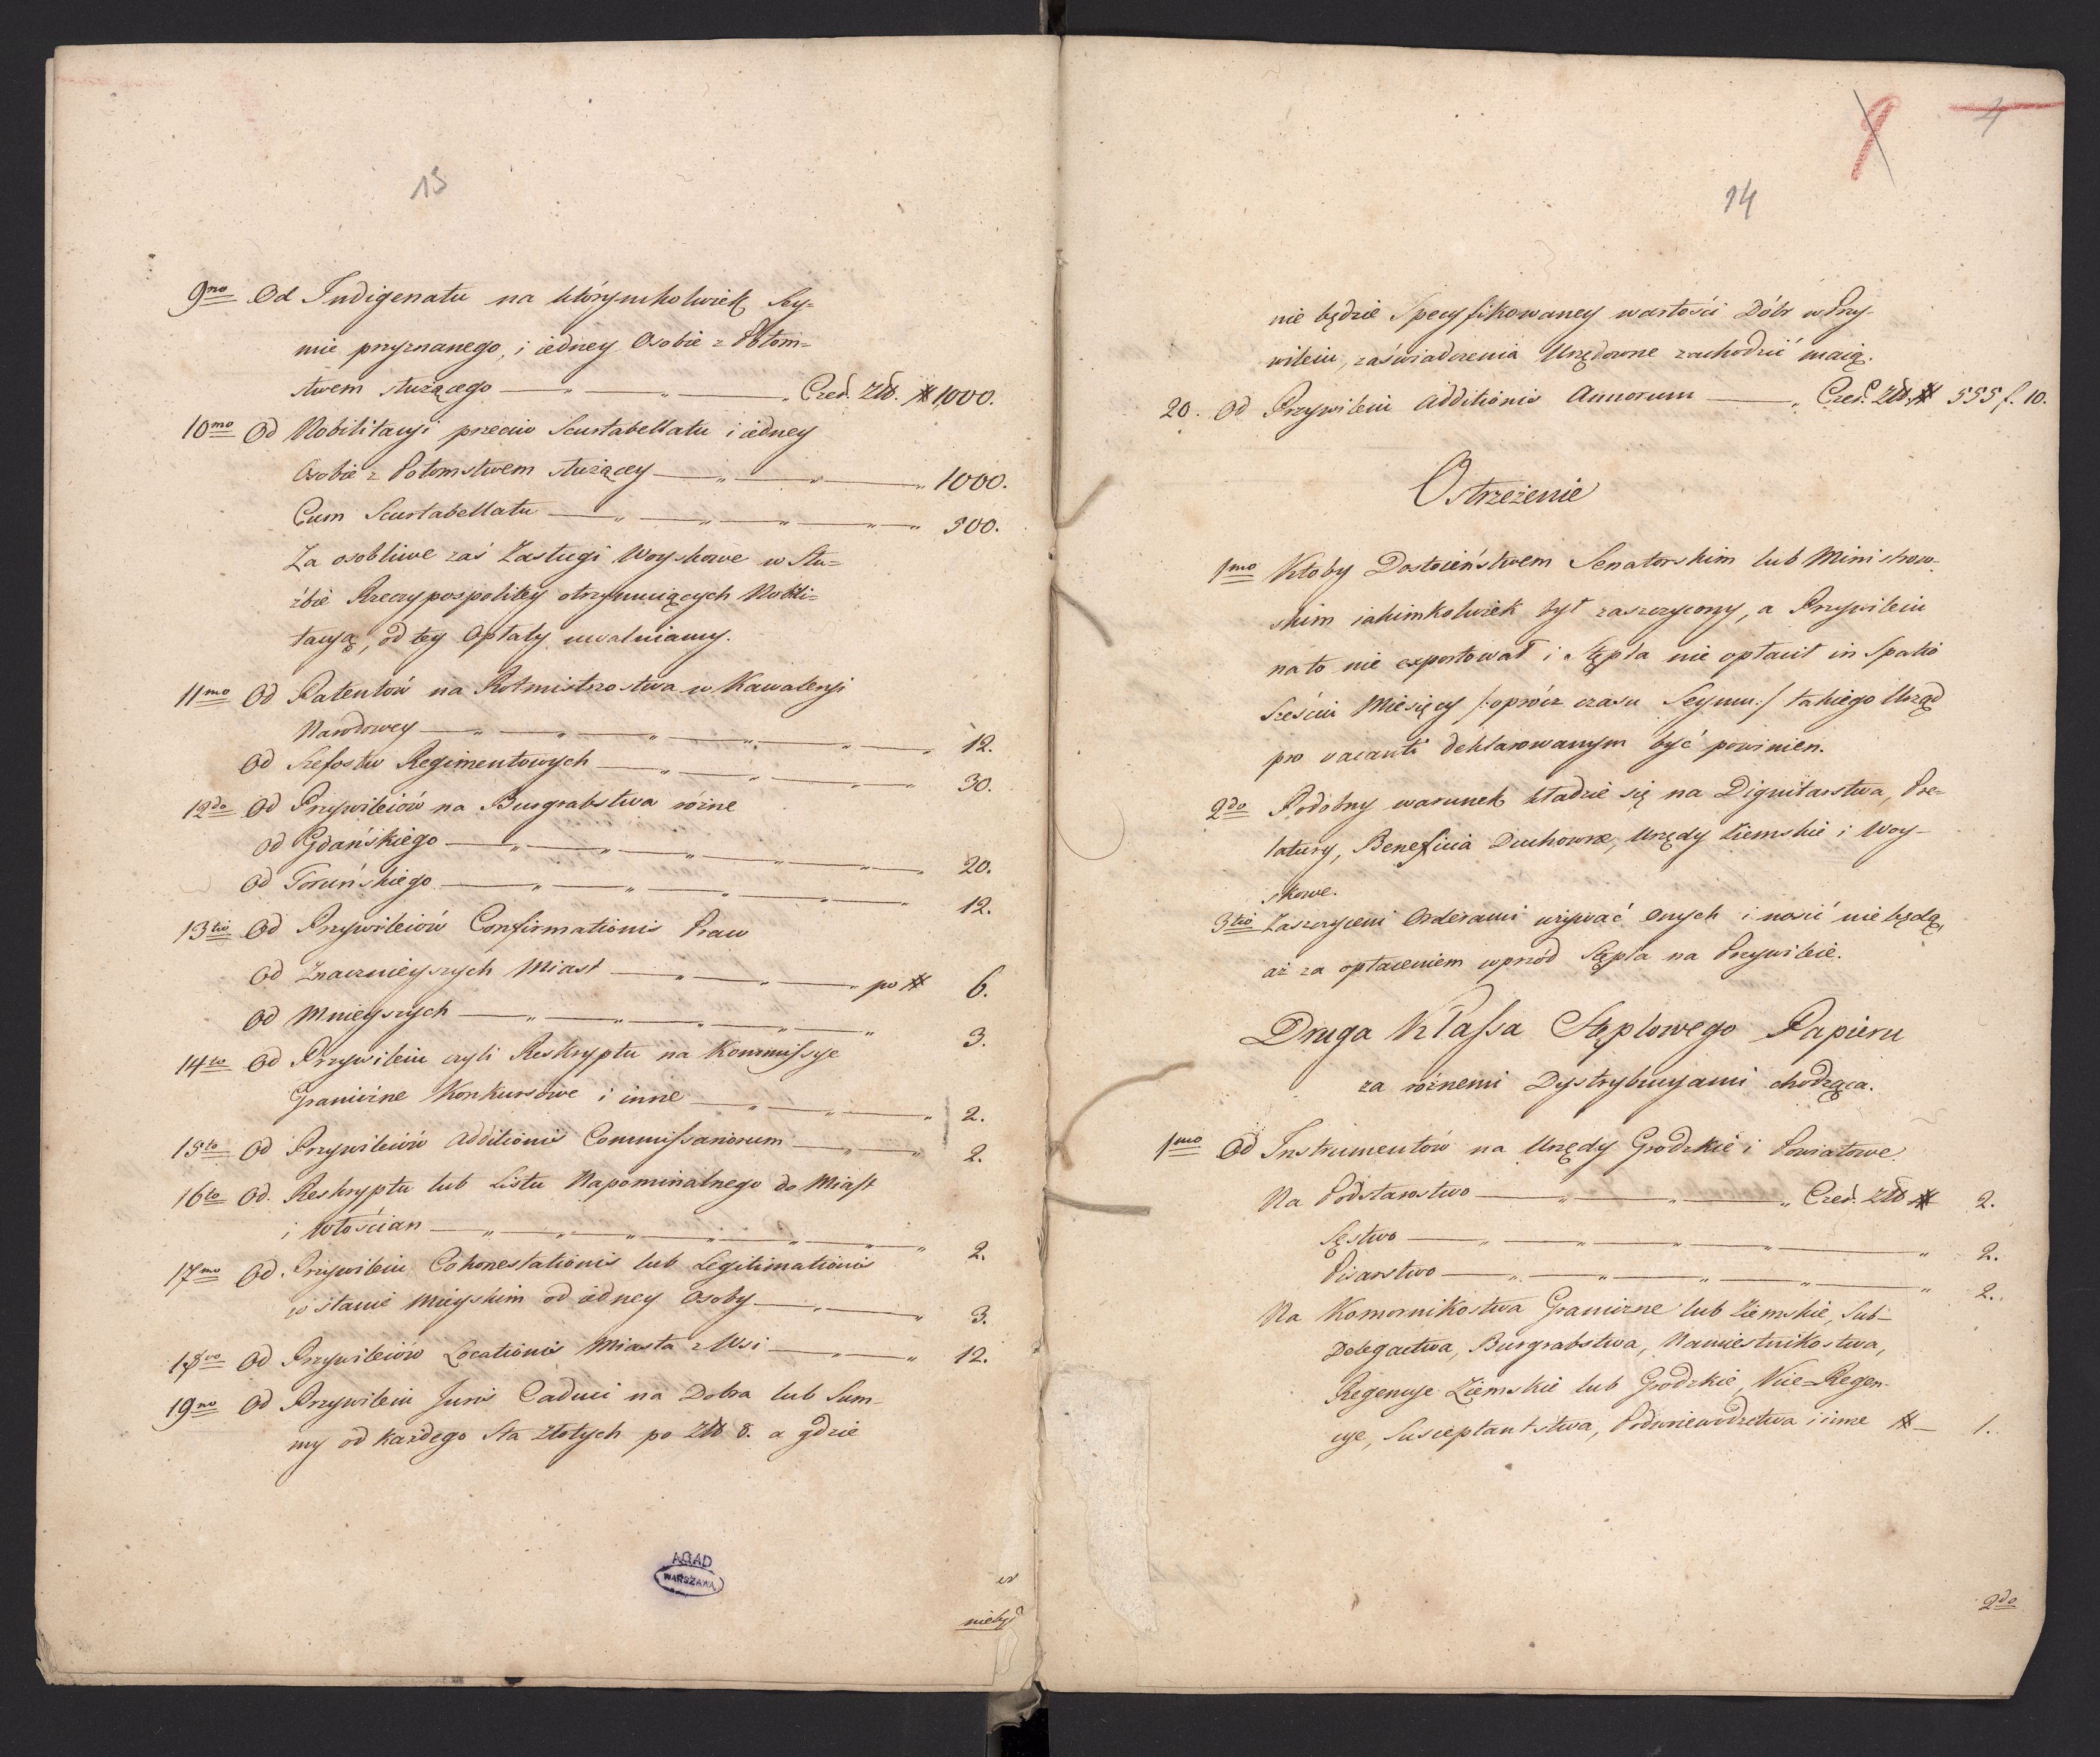 13
9no Od Indigenatu na którymkolwiek Sey=
mie przyznanego, i iedney Osobie z Potom=
stwem służącego — „ — „ — „ Czer. Zł. # 1000.
10mo Od Nobilitacyi preciw Scurtabellatu i iedney
Osobie z Potomstwem służącey — „ — „ — „ 1000.
Cum Scurtabellatu — „ — „ — „ — „ — „ 500.
Za osobliwe zaś Zasługi Woyskowe w Słu=
żbie Rzeczypospolitey otrzymuiących Nobili=
tacyą, od tey Opłaty uwalniamy.
11mo Od Patentów na Rotmistrzostwa w Kawaleryi
Narodowey — „ — „ — „ — „ — „ — „ 12.
Od Szefostw Regimentowych — „ — „ — „ — „ 30.
12do Od Przywileiów na Burgrabstwa różne
Od Gdańskiego — „ — „ — „ — „ — „ 20.
Od Toruńskiego — „ — „ — „ — „ — „ 12.
13tio Od Przywileiów Confirmationis Praw
Od Znacznieyszych Miast — „ — „ — „ po # 6.
Od Mnieyszych — „ — „ — „ — „ — „ 3.
14to Od Przywileiu czyli Reskryptu na Kommissye
Graniczne Konkursowe i inne — „ — „ — „ 2.
15to Od Przywileiów Additionis Commissariorum — „ — „ 2.
16to Od Reskryptu lub Listu Napominalnego do Miast
i Włościan — „ — „ — „ — „ — „ — „ — „ 2.
17mo Od Przywileiu Cohonestationis lub Legitimationis
w stanie Mieyskim od iedney Osoby — „ — „ 3.
18vo Od Przywileiów Locationis Miasta z Wsi — „ — „ 12.
19no Od Przywileiu Juris Caduci na Dobra lub Sum-
my od każdego Sta Złotych po Zł 8. a gdzie
AGAD
WARSZAWA
14
nie będzie Specyfikowaney wartości Dóbr w Przy-
wileiu, zaświadczenia Urzędowne zachodzić maią.
20. Od Przywileiu Additionis Annorum — „ Czer. Zł. # 555 f. 10.
Ostrzeżenie
1mo Ktoby Dostoieństwem Senatorskim lub Ministrow-
skim iakimkolwiek był zaszczycony, a Przywileiu
na to nie exportował i Stępla nie opłacił in Spatio
Sześciu Miesięcy /:oprócz czasu Seymu:/ takiego Urząd
pro vacanti deklarowanym być powinien.
2do Podobny warunek kładzie się na Dignitarstwa, Pre-
latury, Beneficia Duchowne, Urzędy Ziemskie i Woy-
skowe.
3tio Zaszczyceni Orderami używać onych i nosić nie będą,
aż za opłaceniem wprzód Stępla na Przywileie.
Druga Klassa Stęplowego Papieru
za różnemi Dystrybucyami chodząca.
1mo Od Instrumentów na Urzędy Grodzkie i Powiatowe
Na Podstarostwo — „ — „ — „ Czer. Zł # 2.
Sęstwo — „ — „ — „ — „ — „ 2.
Pisarstwo — „ — „ — „ — „ — „ 2.
Na Komornikostwa Graniczne lub Ziemskie, Sub-
Delegactwa, Burgrabstwa, Namiestnikostwa,
Regencye Ziemskie lub Grodzkie, Vice=Regen-
cye, Susceptantstwa, Podwoiewodztwa i inne # — 1.
2do